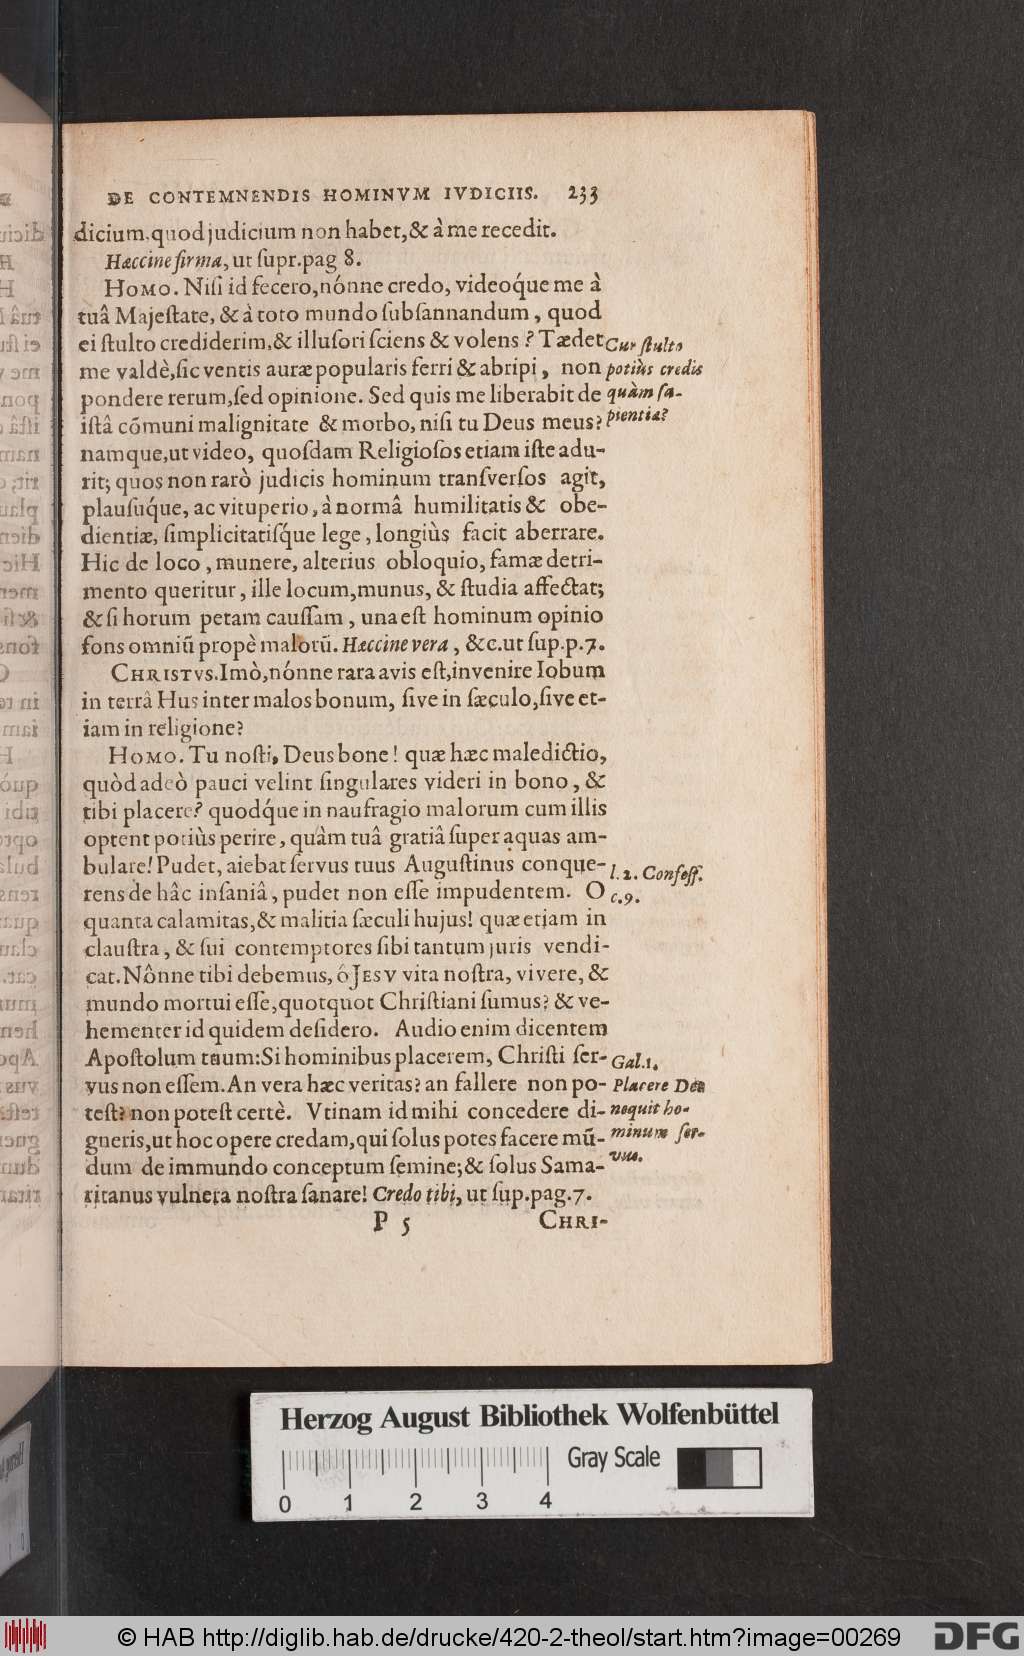 DE CONTEMNENDIS HOMINVM IVDICIIS. 233
dicium, quod judicium non habet, & à me recedit.
Hæccine firma, ut ſupr. pag 8.
HOMO. Niſi id fecero, nónne credo, videoq́ue me à
tuâ Majeſtate, & à toto mundo ſubſannandum, quod
ei ſtulto crediderim, & illuſori ſciens & volens? Tædet
me valdè, ſic ventis auræ popularis ferri & abripi, non
pondere rerum, ſed opinione. Sed quis me liberabit de
iſtâ cõmuni malignitate & morbo, niſi tu Deus meus?
namque, ut video, quoſdam Religioſos etiam iſte adu-
rit; quos non rarò judicis hominum tranſverſos agit,
plauſuq́ue, ac vituperio, à normâ humilitatis & obe-
dientiæ, ſimplicitatiſq́ue lege, longiùs facit aberrare.
Hic de loco, munere, alterius obloquio, famæ detri-
mento queritur, ille locum, munus, & ſtudia affectat;
& ſi horum petam cauſſam, una eſt hominum opinio
fons omniũ propè malorũ. Hæccine vera, &c. ut ſup. p. 7.
CHRISTVS. Imò, nónne rara avis eſt, invenire Iobum
in terrâ Hus inter malos bonum, ſive in ſæculo, ſive et-
iam in religione?
HOMO. Tu noſti, Deus bone! quæ hæc maledictio,
quòd adeò pauci velint ſingulares videri in bono, &
tibi placere? quodq́ue in naufragio malorum cum illis
optent potiùs perire, quàm tuâ gratiâ ſuper aquas am-
bulare! Pudet, aiebat ſervus tuus Auguſtinus conque-
rens de hâc inſaniâ, pudet non eſſe impudentem. O
quanta calamitas, & malitia ſæculi hujus! quæ etiam in
clauſtra, & ſui contemptores ſibi tantum juris vendi-
cat. Nônne tibi debemus, ó JESV vita noſtra, vivere, &
mundo mortui eſſe, quotquot Chriſtiani ſumus? & ve-
hementer id quidem deſidero. Audio enim dicentem
Apoſtolum tuum: Si hominibus placerem, Chriſti ſer-
vus non eſſem. An vera hæc veritas? an fallere non po-
teſt? non poteſt certè. Vtinam id mihi concedere di-
gneris, ut hoc opere credam, qui ſolus potes facere mũ-
dum de immundo conceptum ſemine; & ſolus Sama-
ritanus vulnera noſtra ſanare! Credo tibi, ut ſup. pag. 7.
P 5 CHRI-
Cur ſtulto
potiùs credis
quàm ſa-
pientia?
l. 2. Confeſſ.
c. 9.
Gal. 1.
Placere Deo
nequit ho-
minum ſer-
vus.
Herzog August Bibliothek Wolfenbüttel
Gray Scale
0 1 2 3 4
© HAB http://diglib.hab.de/drucke/420-2-theol/start.htm?image=00269
DFG